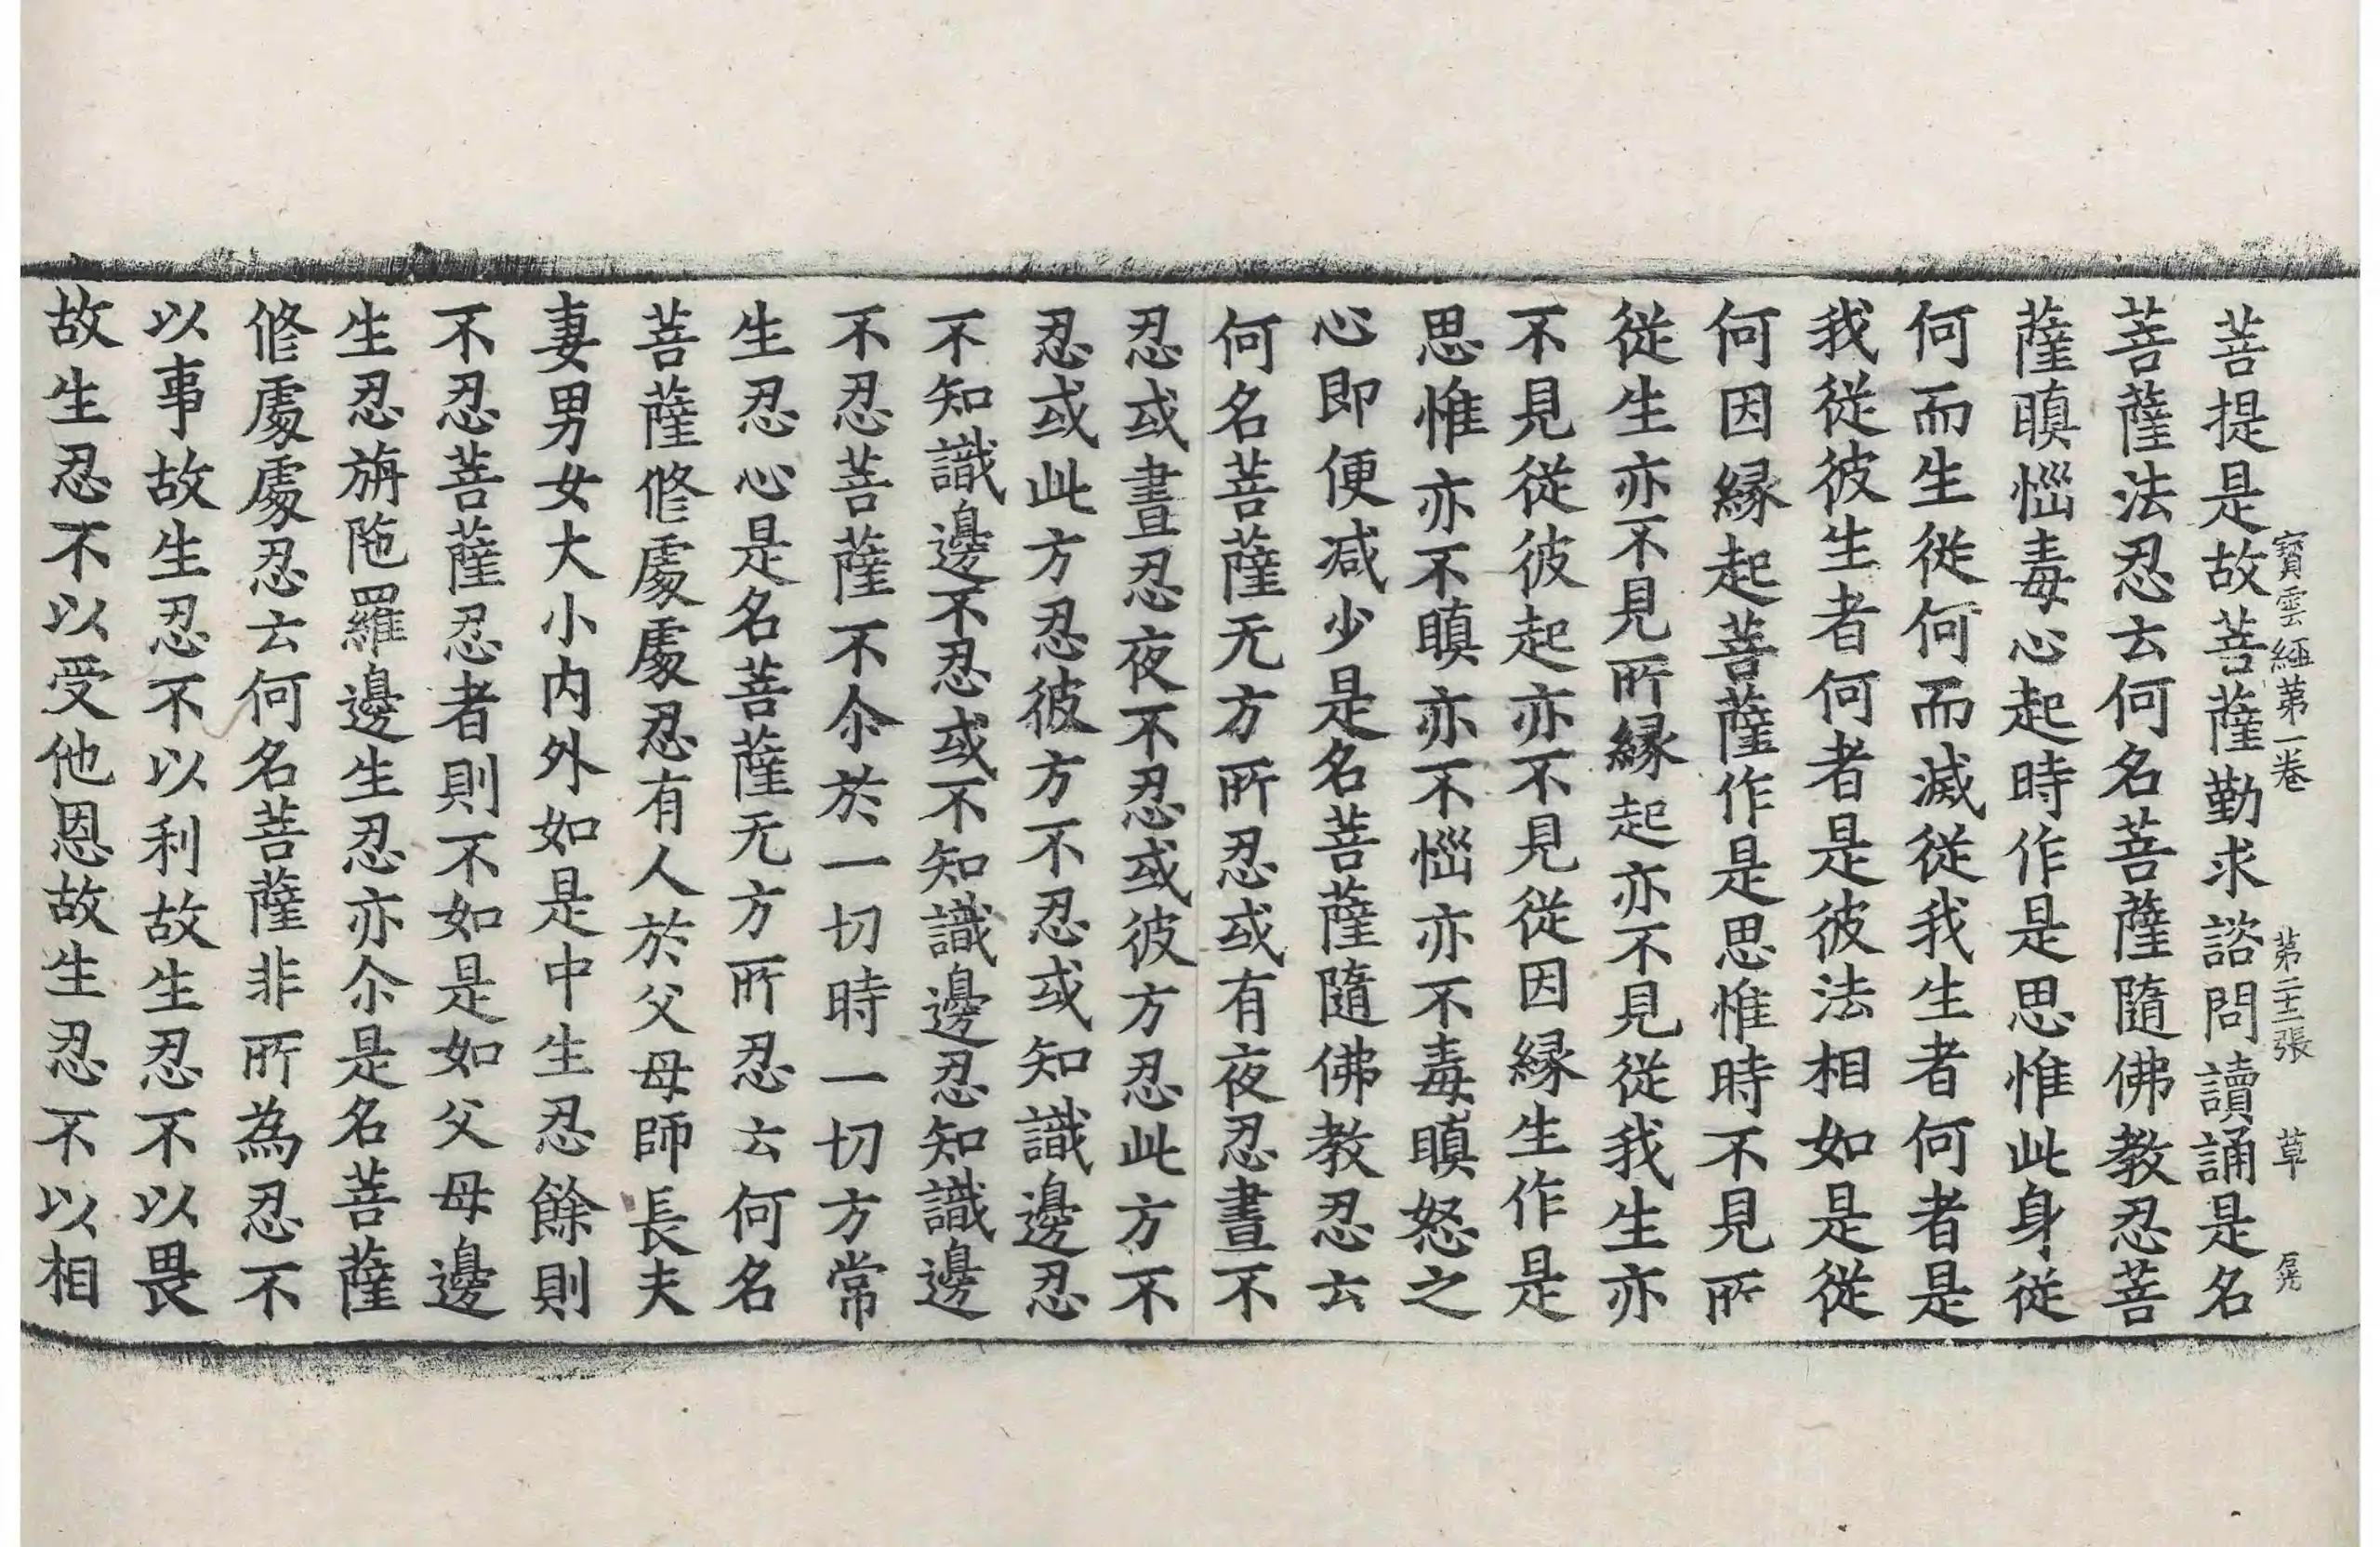 寳雲經第一卷　第二十三張　草　𠒎
菩提是故菩薩勤求諮問讀誦是名
菩薩法忍云何名菩薩隨佛教忍菩
薩瞋惱毒心起時作是思惟此身從
何而生從何而滅從我生者何者是
我從彼生者何者是彼法相如是從
何因縁起菩薩作是思惟時不見所
從生亦不見所縁起亦不見從我生亦
不見從彼起亦不見從因縁生作是
思惟亦不瞋亦不惱亦不毒瞋怒之
心即便减少是名菩薩隨佛教忍云
何名菩薩无方所忍或有夜忍晝不
忍或晝忍夜不忍或彼方忍此方不
忍或此方忍彼方不忍或知識邊忍
不知識邊不忍或不知識邊忍知識邊
不忍菩薩不尒於一切時一切方常
生忍心是名菩薩无方所忍云何名
菩薩修處處忍有人於父母師長夫
妻男女大小内外如是中生忍餘則
不忍菩薩忍者則不如是如父母邊
生忍旃陁羅邊生忍亦尒是名菩薩
修處處忍云何名菩薩非所為忍不
以事故生忍不以利故生忍不以畏
故生忍不以受他恩故生忍不以相